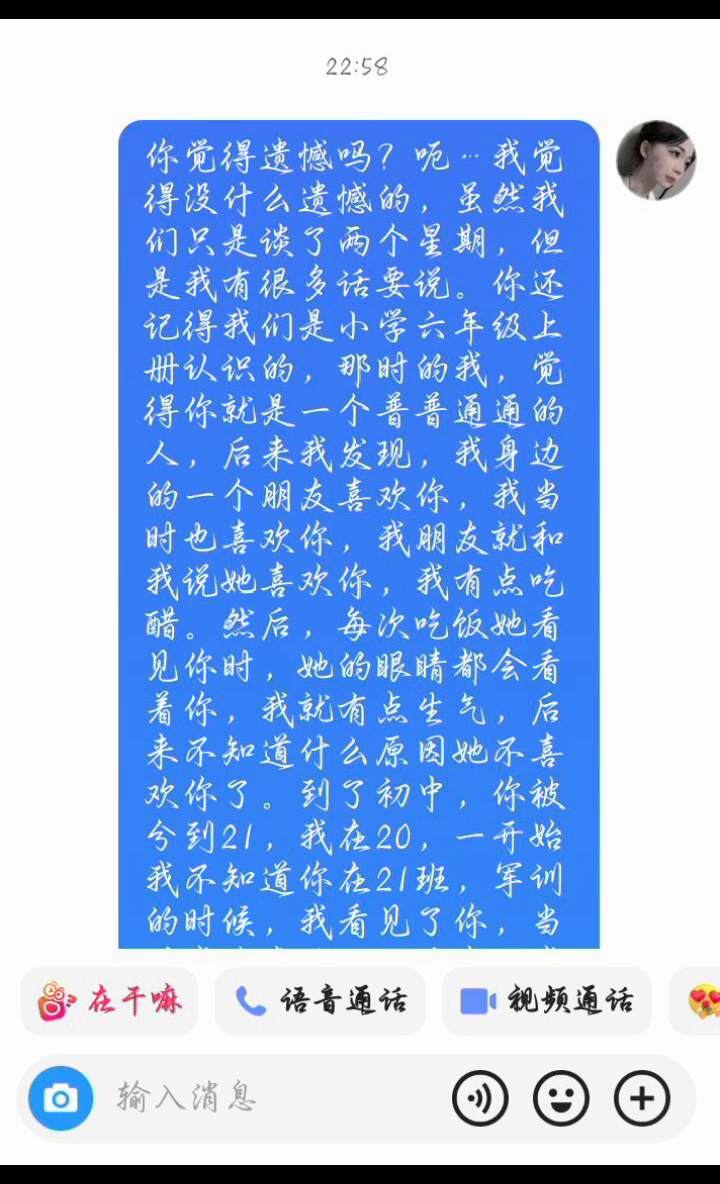 22:58
你觉得遗憾吗？呃…我觉
得没什么遗憾的，虽然我
们只是谈了两个星期，但
是我有很多话要说。你还
记得我们是小学六年级上
册认识的，那时的我，觉
得你就是一个普普通通的
人，后来我发现，我身边
的一个朋友喜欢你，我当
时也喜欢你，我朋友就和
我说她喜欢你，我有点吃
醋。然后，每次吃饭她看
见你时，她的眼睛都会看
着你，我就有点生气，后
来不知道什么原因她不喜
欢你了。到了初中，你被
分到21，我在20，一开始
我不知道你在21班，军训
的时候，我看见了你，当
在干嘛
语音通话
视频通话
输入消息